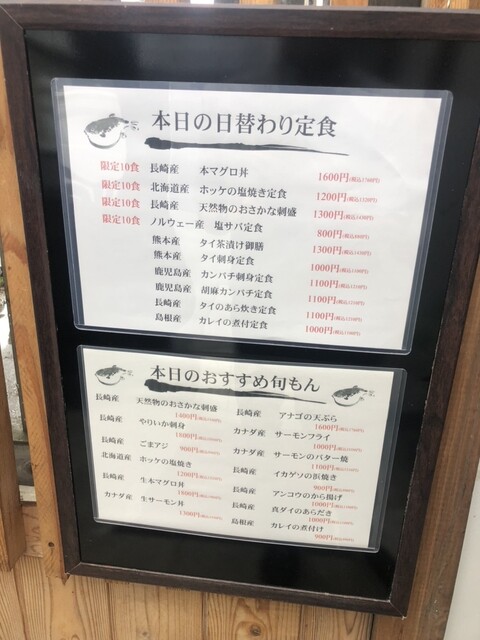 本日の日替わり定食
限定10食 長崎産 本マグロ丼 1600円(税込1760円)
限定10食 北海道産 ホッケの塩焼き定食 1200円(税込1320円)
限定10食 長崎産 天然物のおさかな刺盛 1300円(税込1430円)
限定10食 ノルウェー産 塩サバ定食 800円(税込880円)
熊本産 タイ茶漬け御膳 1300円(税込1430円)
熊本産 タイ刺身定食 1000円(税込1100円)
鹿児島産 カンパチ刺身定食 1100円(税込1210円)
鹿児島産 胡麻カンパチ定食 1100円(税込1210円)
長崎産 タイのあら炊き定食 1100円(税込1210円)
島根産 カレイの煮付定食 1000円(税込1100円)
本日のおすすめ旬もん
長崎産 天然物のおさかな刺盛
1400円
長崎産 やりいか刺身
1800円
長崎産 ごまアジ
900円
北海道産 ホッケの塩焼き
1200円
長崎産 生本マグロ丼
1600円
カナダ産 生サーモン丼
1300円
長崎産 アナゴの天ぷら
1600円
カナダ産 サーモンフライ
1000円
カナダ産 サーモンのバター焼
1100円
長崎産 イカゲソの浜焼き
900円
長崎産 アンコウのから揚げ
1000円
長崎産 真ダイのあらだき
1000円
島根産 カレイの煮付け
900円